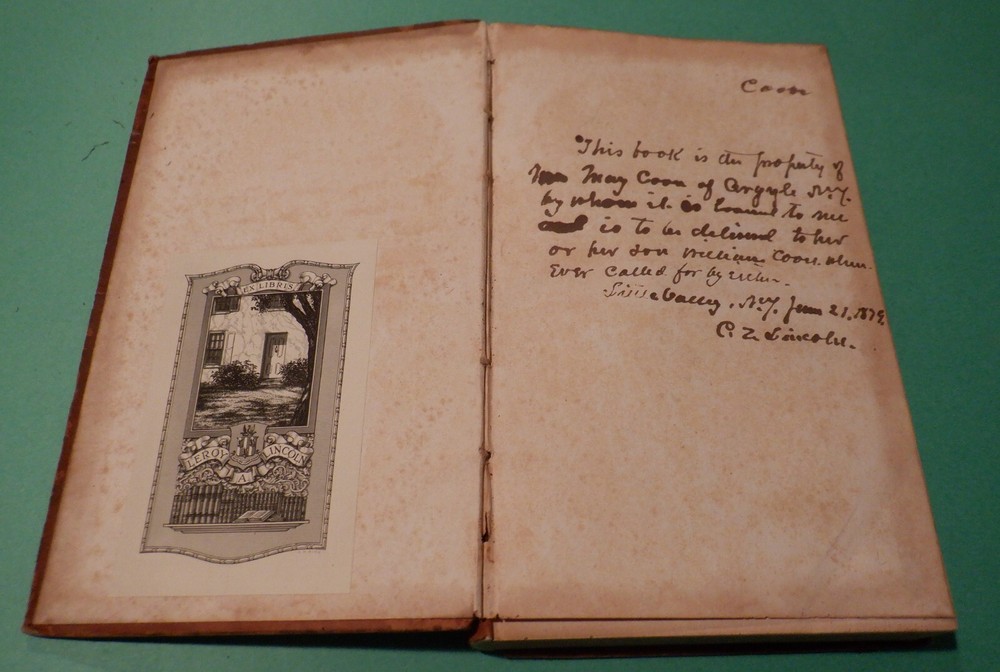 EX LIBRIS
LEROY A LINCOLN
Coon
This book is the property of
May Coon of Argyle N.Y.
by whom it is loaned to me
is to be delivered to her
or her son William Coon when
Ever called for by either.
Little Valley, N.Y. June 21, 1879.
C. Z. Lincoln.